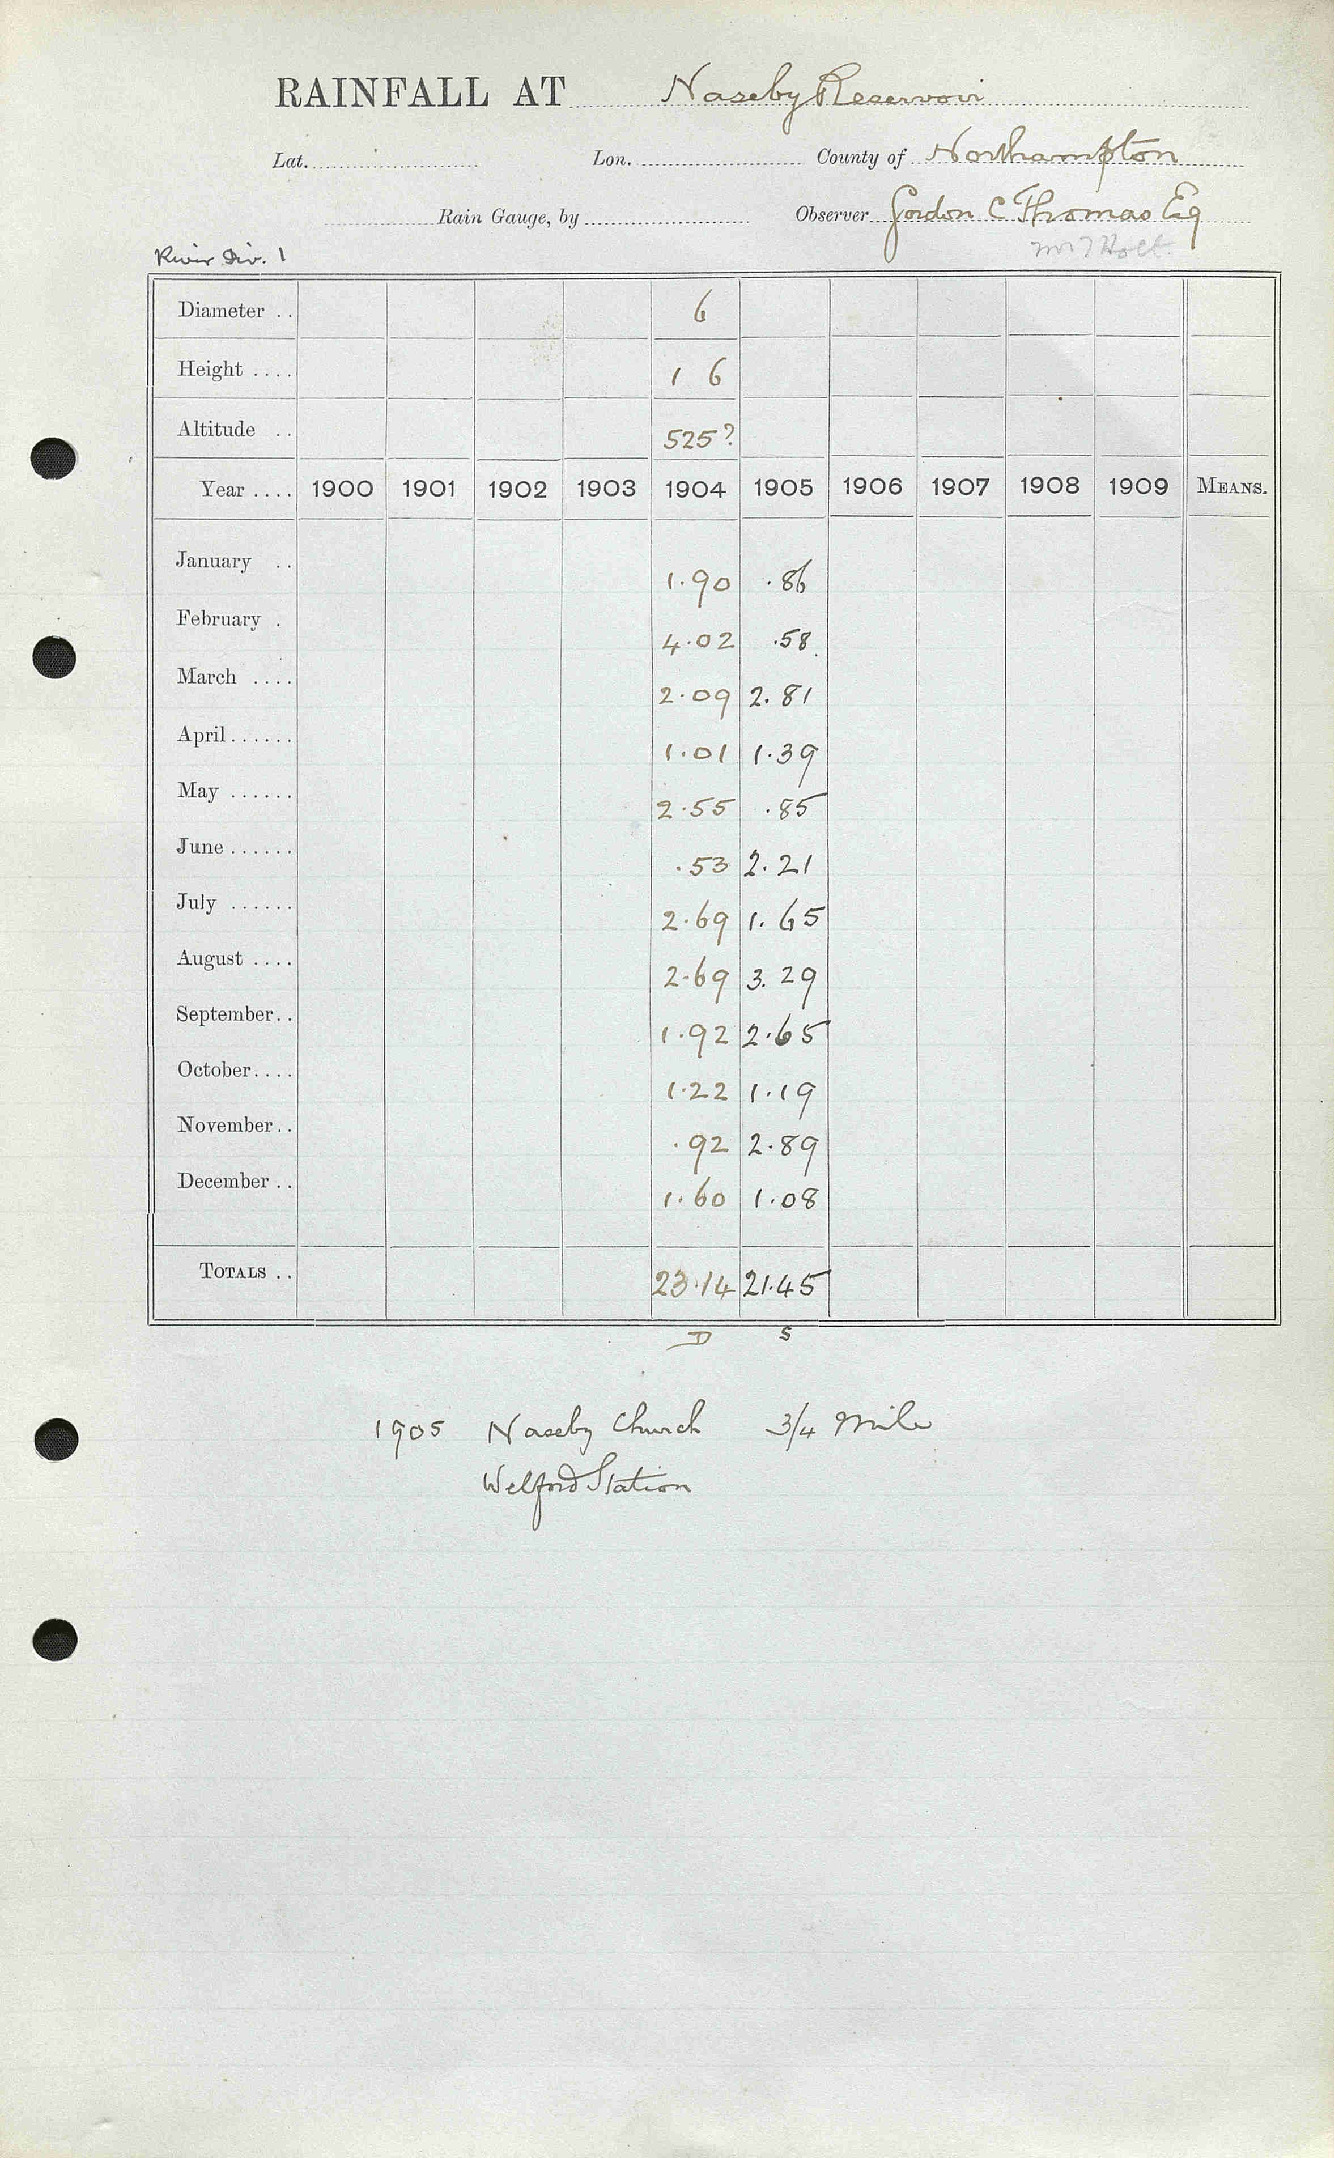 RAINFALL AT Naseby Reservoir
Lat. Lon. County of Northampton
Rain Gauge, by Observer Gordon C Thomas Esq
Holt
River Div. 1
Diameter .. 6
Height .... 1 6
Altitude .. 525?
Year .... 1900 1901 1902 1903 1904 1905 1906 1907 1908 1909 MEANS.
January .. 1.90 .86
February . 4.02 .58
March .... 2.09 2.81
April ...... 1.01 1.39
May ...... 2.55 .85
June ...... .53 2.21
July ...... 2.69 1.65
August .... 2.69 3.29
September.. 1.92 2.65
October.... 1.22 1.19
November.. .92 2.89
December .. 1.60 1.08
TOTALS .. 23.14 21.45
D S
1905 Naseby Church 3/4 Mile
Welford Station